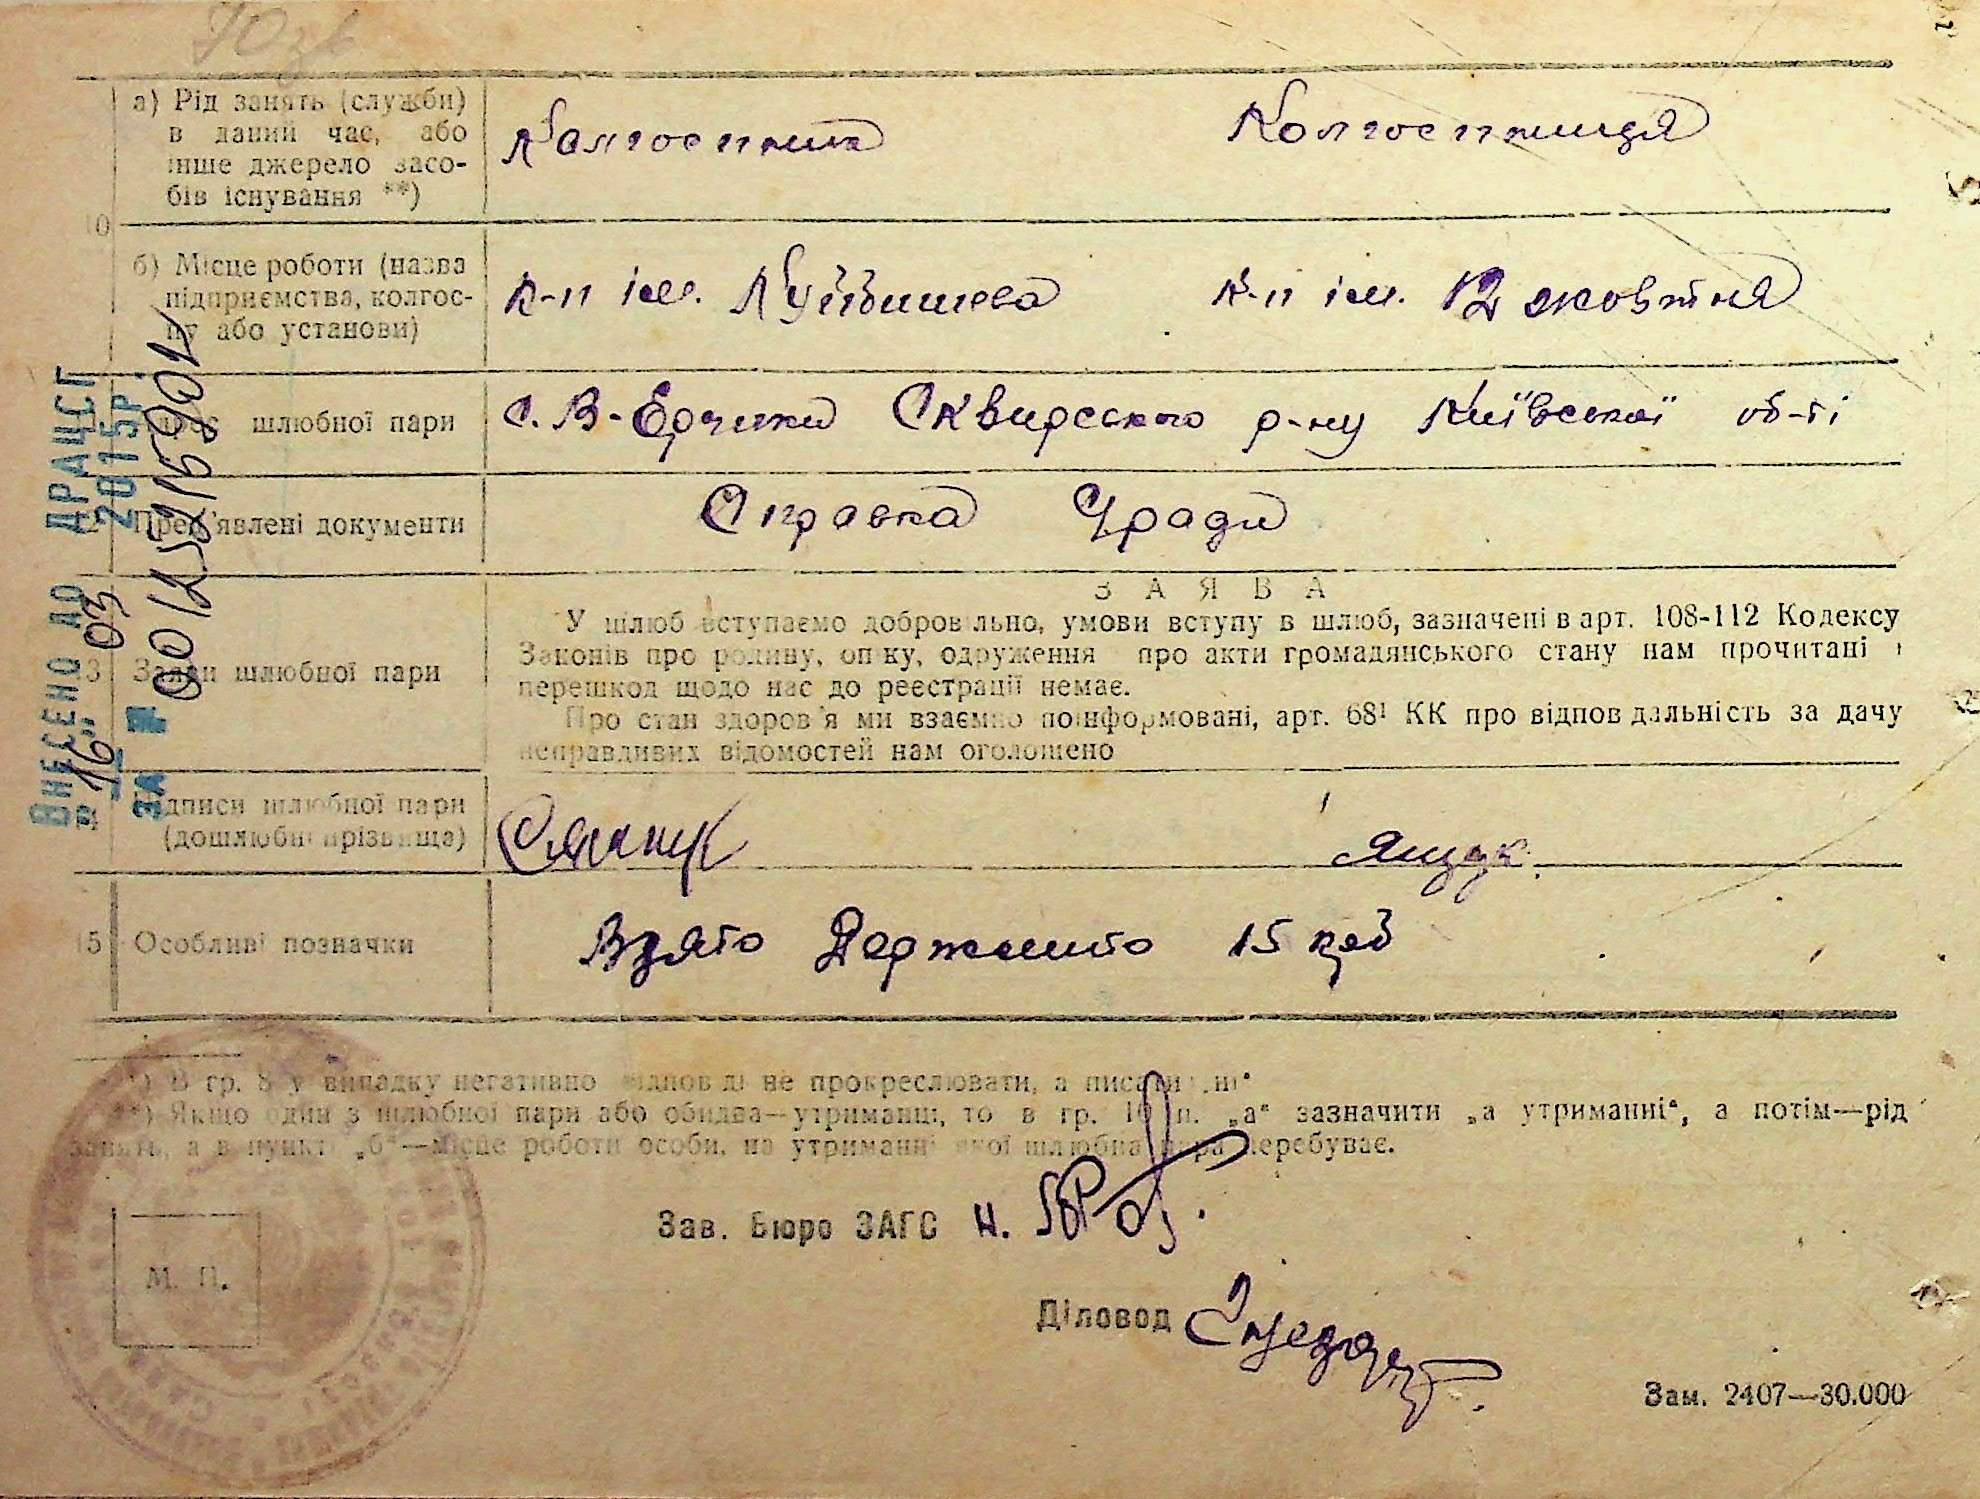 а) Рід занять (служби) в даний час, або інше джерело засобів існування **)
Колгоспник
Колгоспниця
10
б) Місце роботи (назва підприємства, колгоспу або установи)
К-п ім. Куйбишева
К-п ім. 12 жовтня
шлюбної пари
с. В-Єрчики Сквирського р-ну Київської об-ті
Пред'явлені документи
Справка С/ради
Заяви шлюбної пари
ЗАЯВА
У шлюб вступаємо добровільно, умови вступу в шлюб, зазначені в арт. 108-112 Кодексу
Законів про родину, опіку, одруження про акти громадянського стану нам прочитані і
перешкод щодо нас до реєстрації немає.
Про стан здоров'я ми взаємно поінформовані, арт. 68¹ КК про відповідальність за дачу
неправдивих відомостей нам оголошено
Підписи шлюбної пари
(дошлюбні прізвища)
Ящук
15 Особливі позначки
Взято Держмито 15 крб
ВНЕСЕНО ДО ДРАЦСГ
"16" 03 2015р.
ЗА № 00125215902
*) В гр. 8 у випадку негативно відповіді не прокреслювати, а писати „ні“
**) Якщо один з шлюбної пари або обидва—утриманці, то в гр. 10 п. „а“ зазначити „а утриманні“, а потім—рід
занять, а в пункті „б“—місце роботи особи, на утриманні якої шлюбна пара перебуває.
Зав. Бюро ЗАГС
М. П.
Діловод
Зам. 2407—30.000